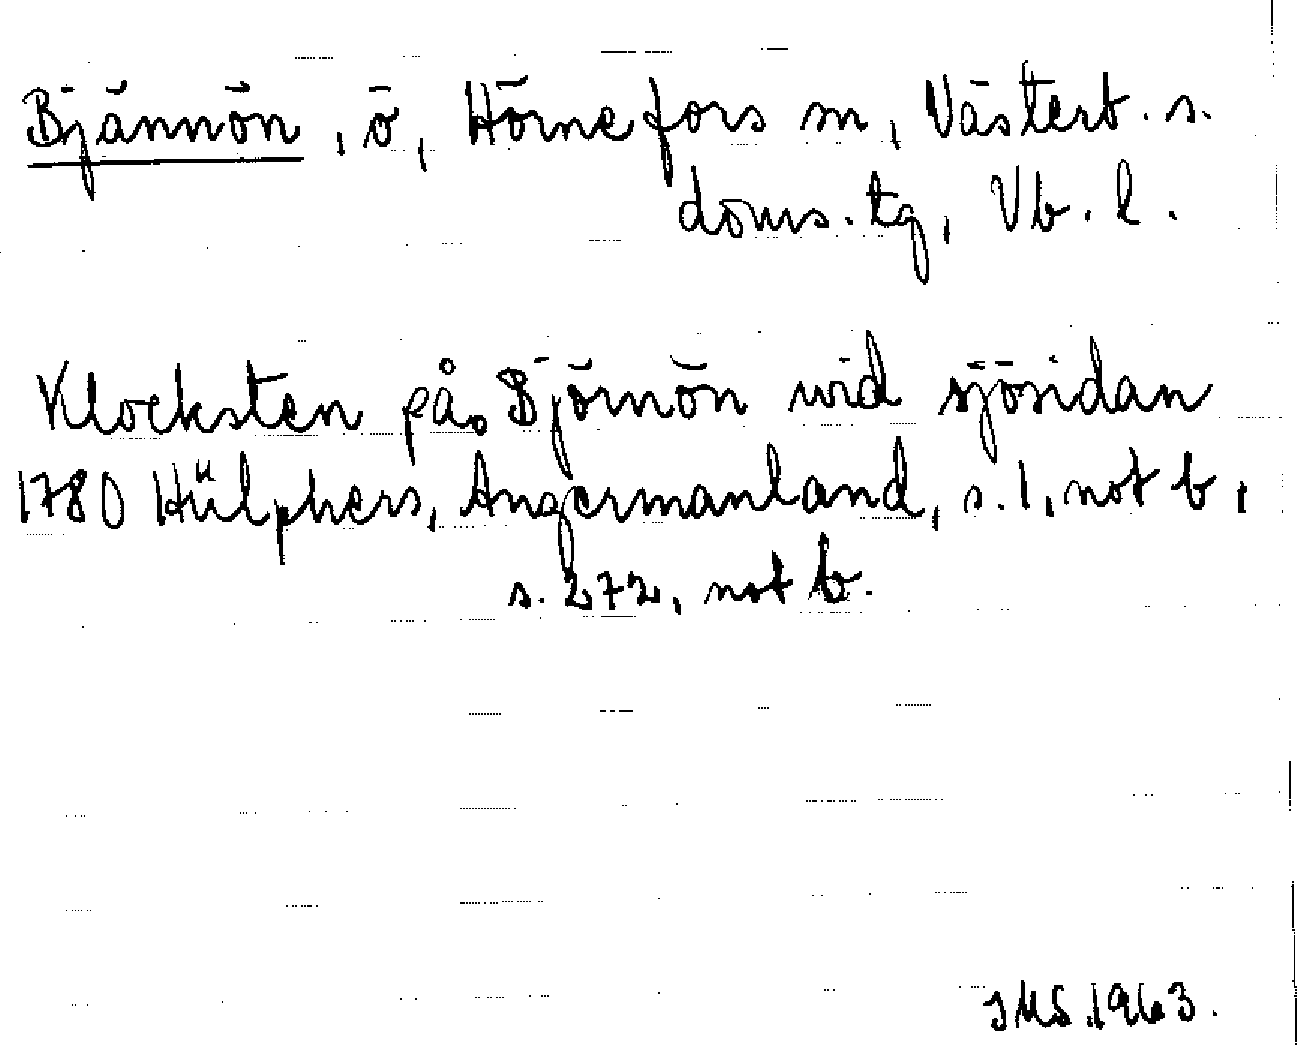 Bjännön, ö, Hörnefors sn, Västerb. s.
doms. tg, Vb. l.
Klocksten på Björnön wid sjösidan
1780 Hülphers, Ångermanland, s. 1, not b,
s. 272, not b.
JMS 1963.